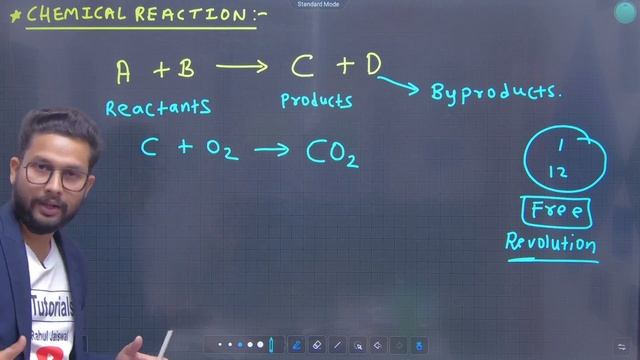 Standard Mode
* CHEMICAL REACTION :-
A + B → C + D
Byproducts.
Reactants
Products
C + O₂ → CO₂
1
12
Free
Revolution
Tutorials
Rahul Jaiswal